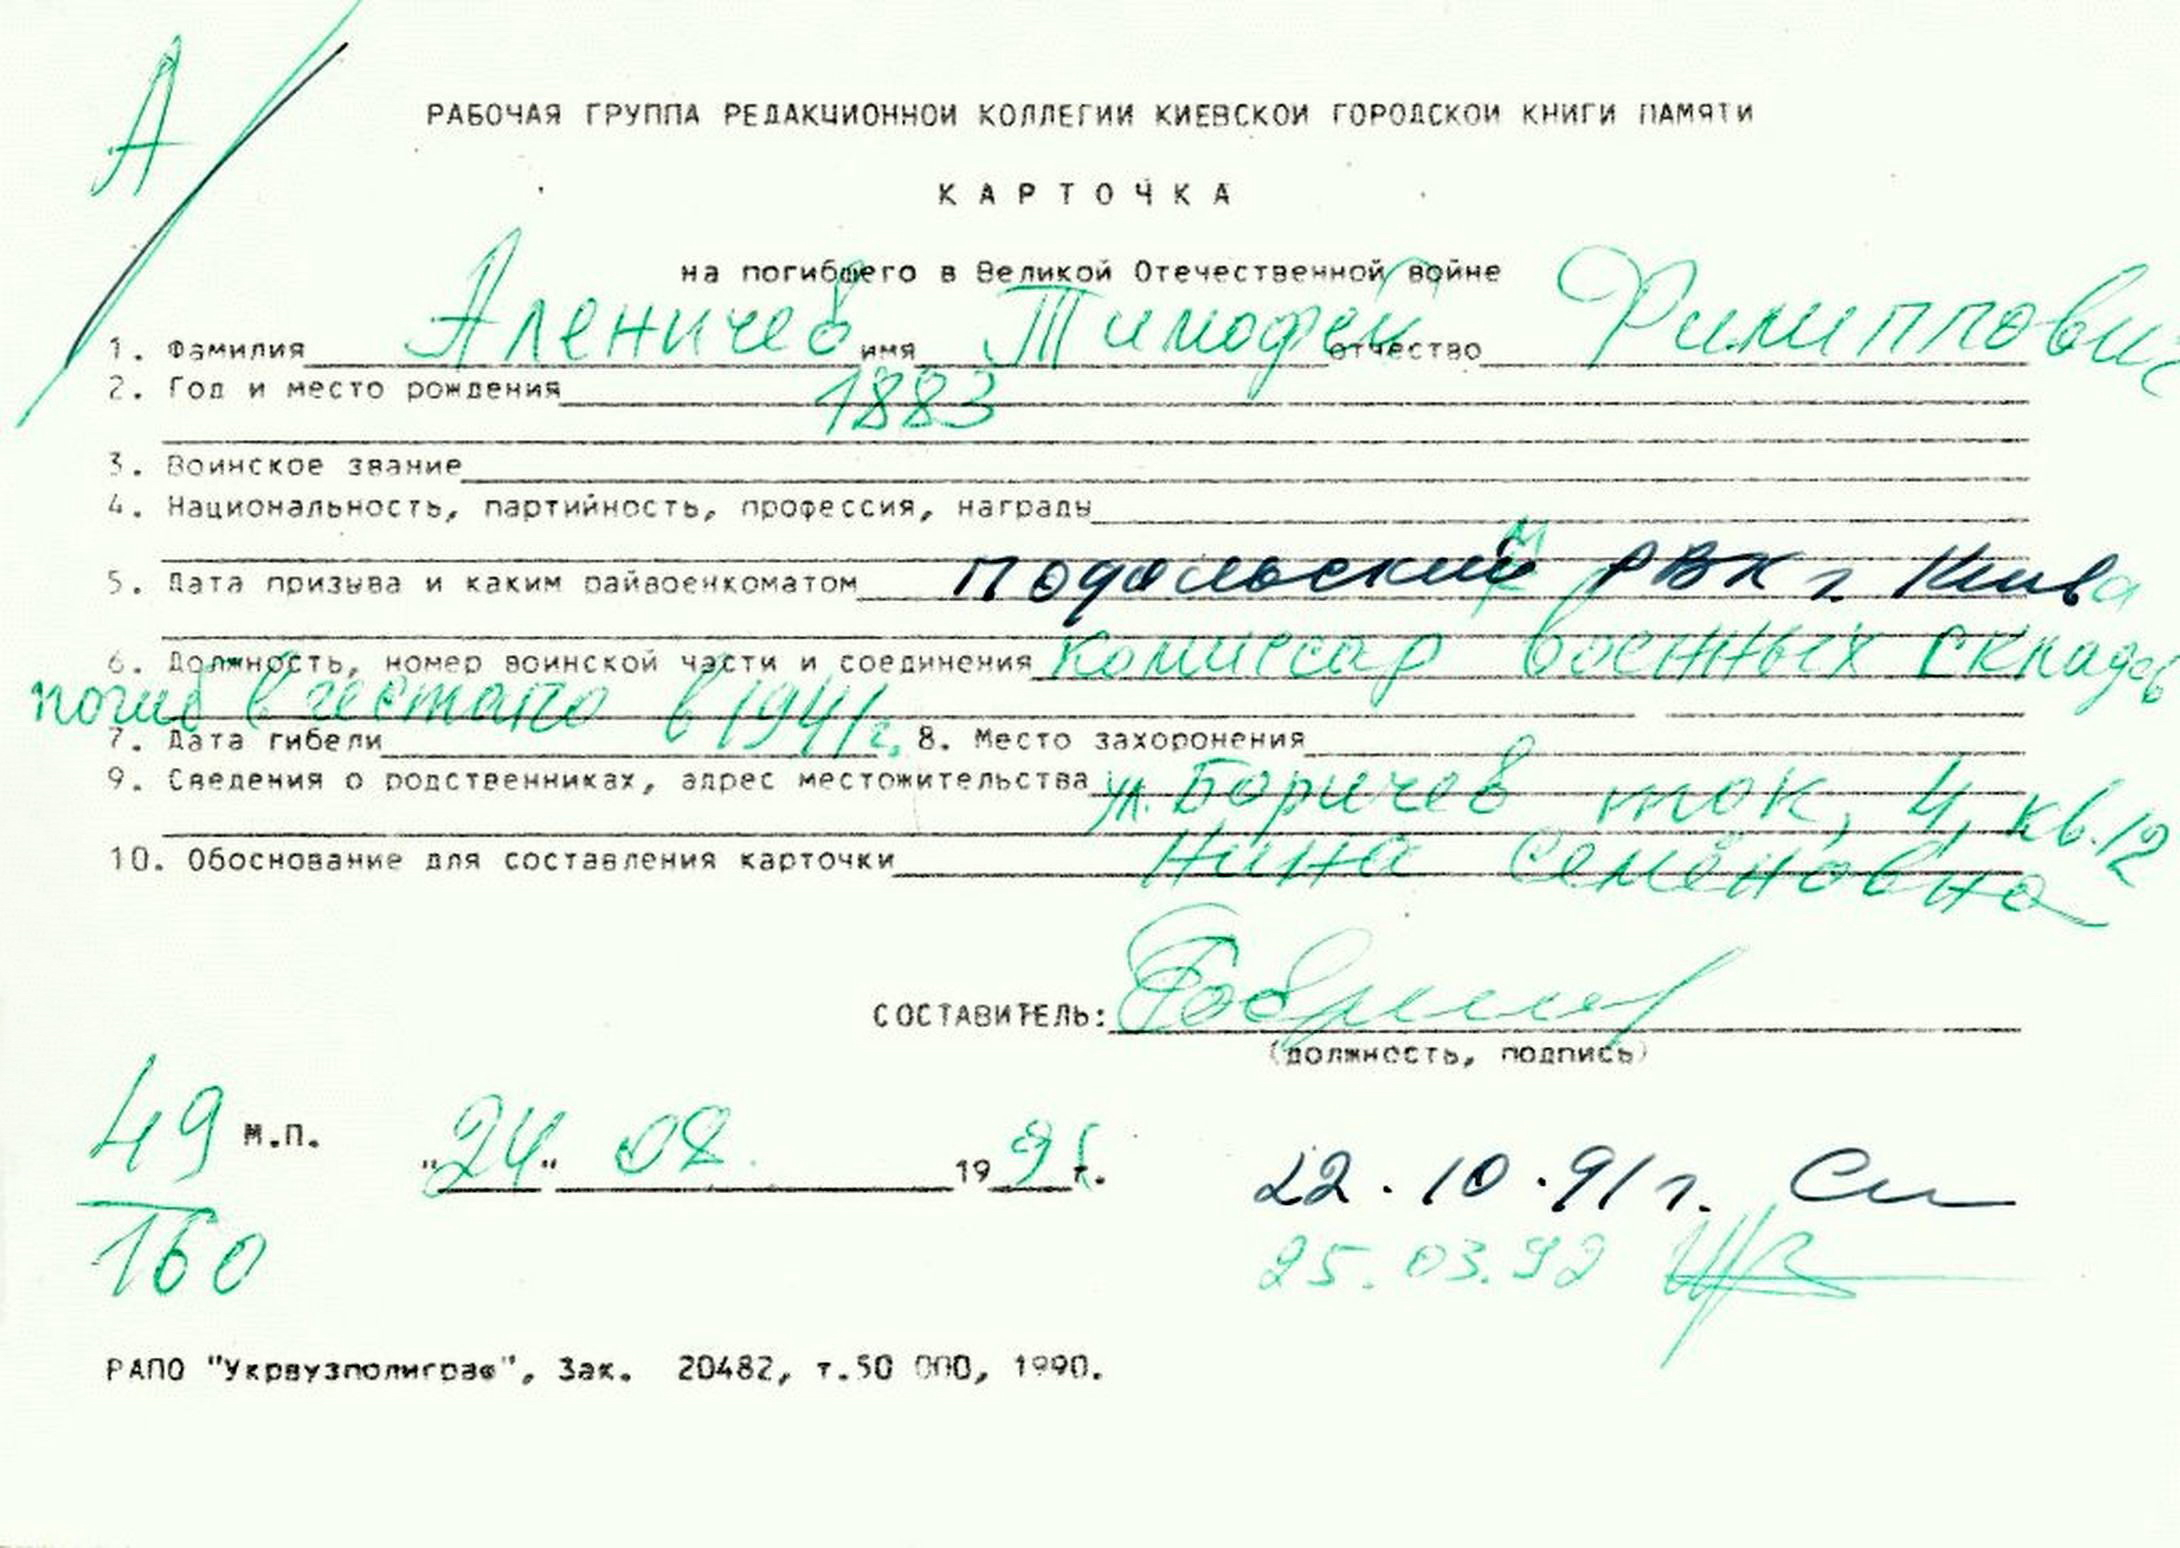 А
РАБОЧАЯ ГРУППА РЕДАКЦИОННОЙ КОЛЛЕГИИ КИЕВСКОЙ ГОРОДСКОЙ КНИГИ ПАМЯТИ
КАРТОЧКА
на погибшего в Великой Отечественной войне
1. Фамилия Аленичев имя Тимофей отчество Филиппович
2. Год и место рождения 1883
3. Воинское звание
4. Национальность, партийность, профессия, награды
5. Дата призыва и каким райвоенкоматом Подольский РВК г. Киева
6. Должность, номер воинской части и соединения комиссар военных складов
погиб в гестапо в 1941 г.
7. Дата гибели 8. Место захоронения
9. Сведения о родственниках, адрес местожительства ул. Боричев ток, 4, кв. 12
Нина Семёновна
10. Обоснование для составления карточки
СОСТАВИТЕЛЬ:
(должность, подпись)
49 М.П. "24" 08. 1991 г.
160
22.10.91 г.
25.03.92
РАПО "Укрвузполиграф", Зак. 20482, т.50 000, 1990.